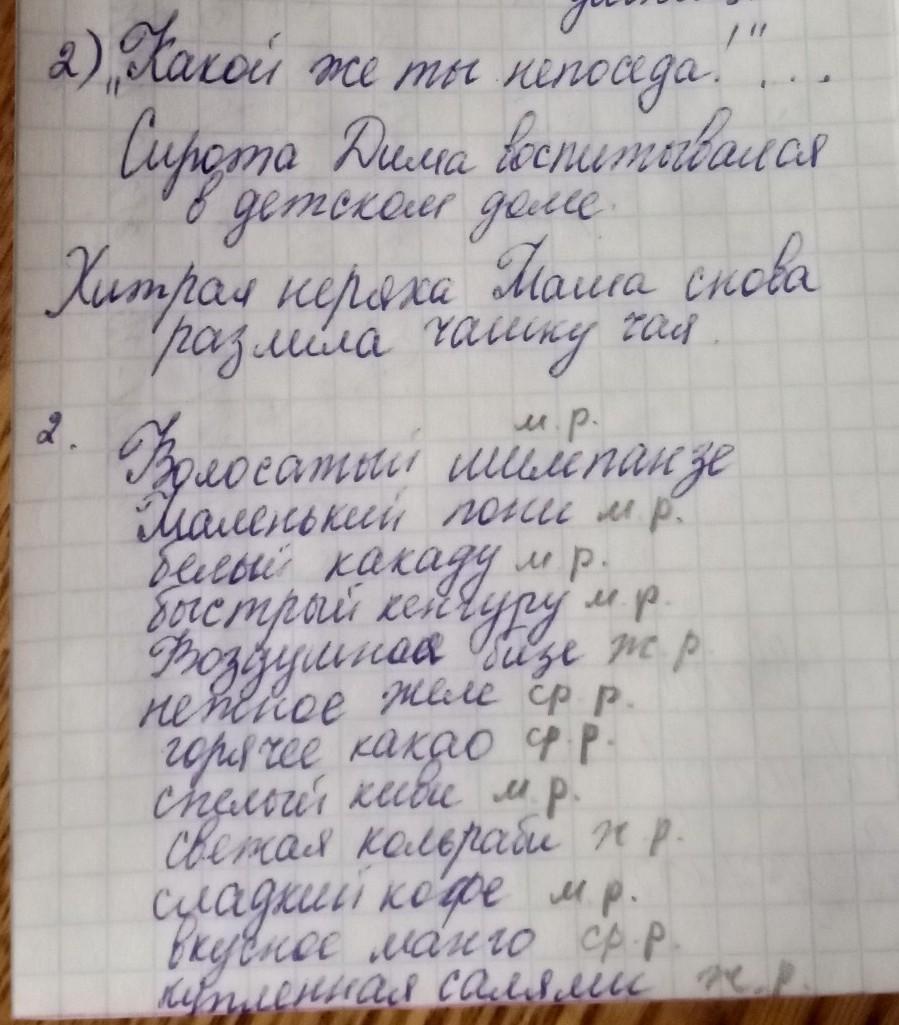 2) „Какой же ты непоседа!" ...
Сирота Дима воспитывался
в детском доме.
Хитрая неряха Маша снова
разлила чашку чая.
2.
м. р.
Волосатый шимпанзе
Маленький пони м. р.
белый какаду м. р.
быстрый кенгуру м. р.
Воздушная бизе ж. р.
нежное желе ср. р.
горячее какао ср. р.
спелый киви м. р.
свежая кольраби ж. р.
сладкий кофе м. р.
вкусное манго ср. р.
купленная салями ж. р.